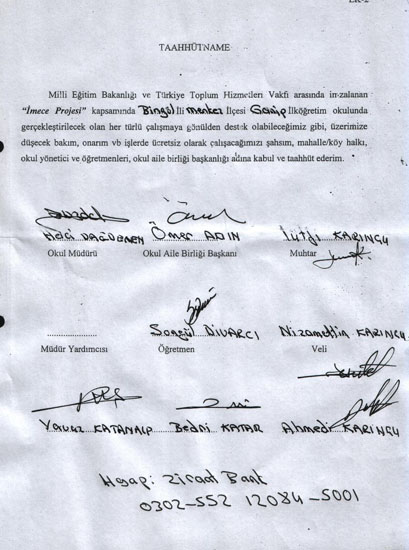 EK-2
TAAHHÜTNAME
Milli Eğitim Bakanlığı ve Türkiye Toplum Hizmetleri Vakfı arasında imzalanan
"İmece Projesi" kapsamında Bingöl İli merkez İlçesi Garip İlköğretim okulunda
gerçekleştirilecek olan her türlü çalışmaya gönülden destek olabileceğimiz gibi, üzerimize
düşecek bakım, onarım vb işlerde ücretsiz olarak çalışacağımızı şahsım, mahalle/köy halkı,
okul yönetici ve öğretmenleri, okul aile birliği başkanlığı adına kabul ve taahhüt ederim.
Ömer ADIN Lütfi KARINÇU
Okul Müdürü Okul Aile Birliği Başkanı Muhtar
.................... Songül DİVARCI Nizamettin KARINÇU
Müdür Yardımcısı Öğretmen Veli
Yavuz KATANALP Bedri KATAR Ahmedi KARINÇU
Hesap: Ziraat Bank
0302-552 12084-5001